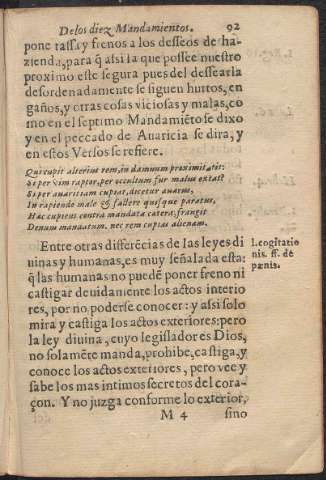 De los diez Mandamientos. 92
pone tassa y frenos a los desseos de ha-
zienda, para q̃ assi la que possee nuestro
proximo este segura pues del dessearla
desordenadamente se siguen hurtos, en
gaños, y otras cosas viciosas y malas, co
mo en el septimo Mandamiẽto se dixo
y en el peccado de Auaricia se dira, y
en estos Versos se refiere.
Qui cupit alterius rem, in damnum proximitatis:
Si per vim raptor, per occultum fur malus extat
Si per auaritiam cupiat, dicetur auarus,
In rapiendo male & fallere quisque paratus,
Hac cupiens contra mandata catera, frangit
Denum mandatum, nec rem cupias alienam.
Entre otras differẽcias de las leyes di
uinas y humanas, es muy señalada esta:
q̃ las humanas no puedẽ poner freno ni
castigar deuidamente los actos interio
res, por no poderse conocer: y assi solo
mira y castiga los actos exteriores: pero
la ley diuina, cuyo legislador es Dios,
no solamẽte manda, prohibe, castiga, y
conoce los actos exteriores, pero vee y
sabe los mas intimos secretos del cora-
çon. Y no juzga conforme lo exterior,
M 4 sino
l. cogitatio
nis. ff. de
pœnis.